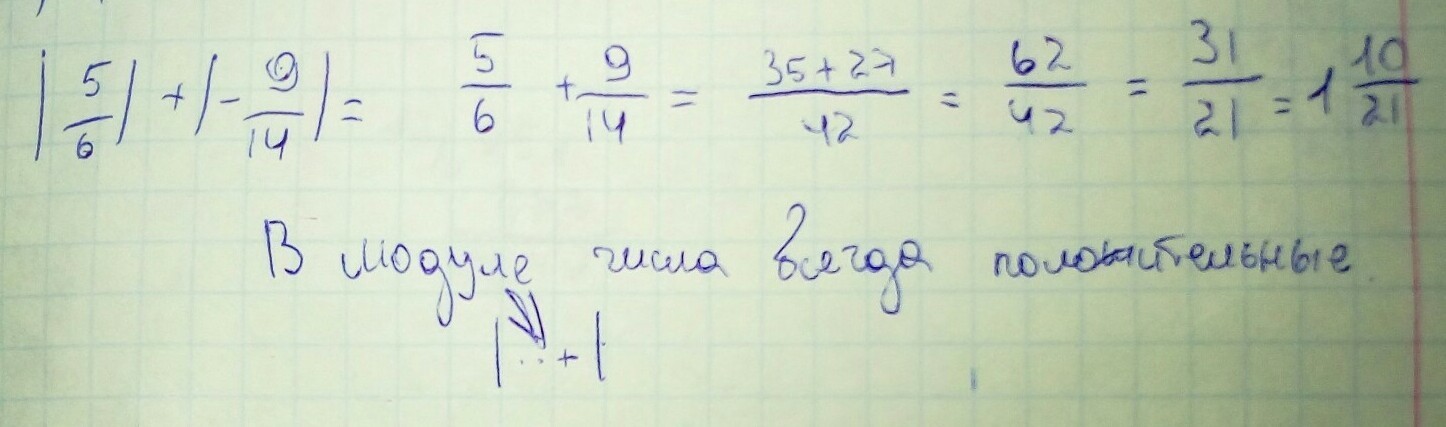 |5/6| + |-9/14| = 5/6 + 9/14 = 35+27/42 = 62/42 = 31/21 = 1 10/21
В модуле числа всегда положительные.
|..+|